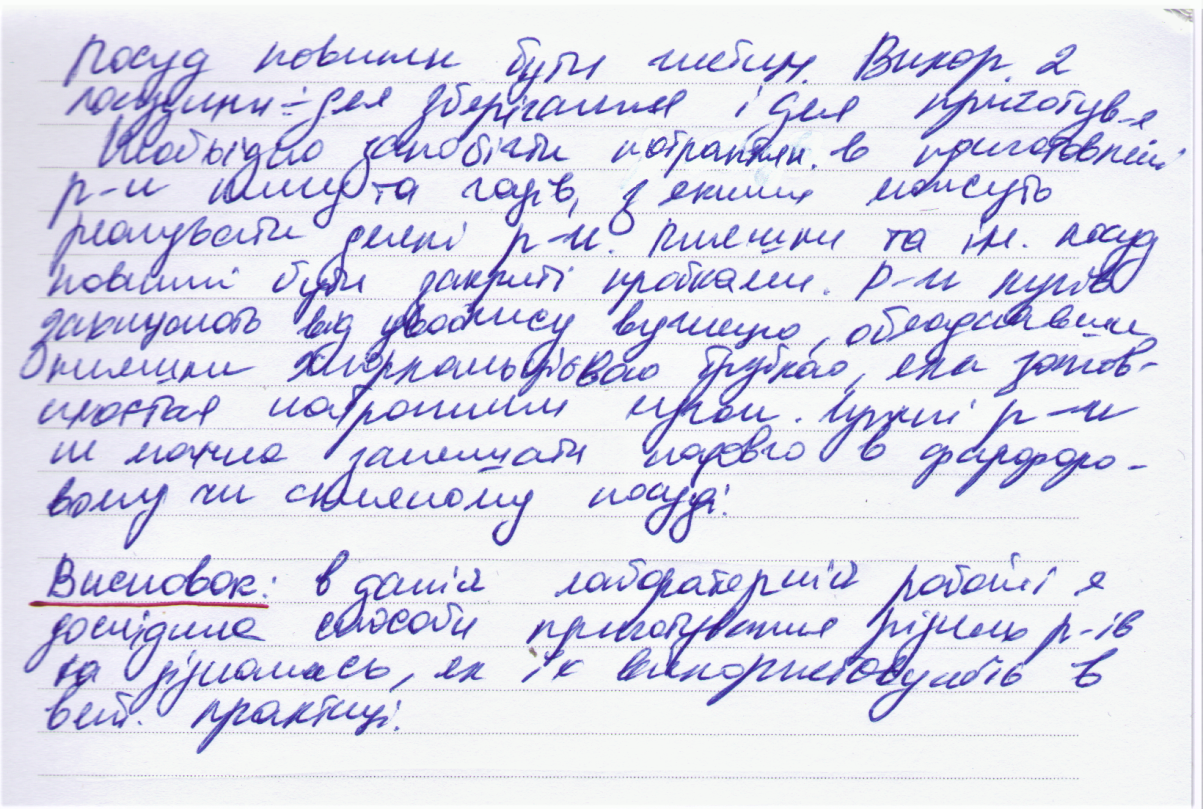 Посуд повинен бути чистим. Викор. 2
посудини – для зберігання і для приготув-я
Необхідно запобігти потраплян. в приготовлені
р-ни пилу та газів, з якими можуть
реагувати деякі р-ни. Пляшки та ін. посуд
повинні бути закриті пробками. Р-ни лугів
захищають від вуглецю,
пляшки хлоркальцієвою трубкою, яка запов-
нюється натронним вапном. Лужні р-ни
не можна залишати надовго в фарфоро-
вому чи скляному посуді.
Висновок: в даній лабораторній роботі я
дослідила способи приготування різних р-ів
та дізналась, як їх використовують в
вет. практиці.